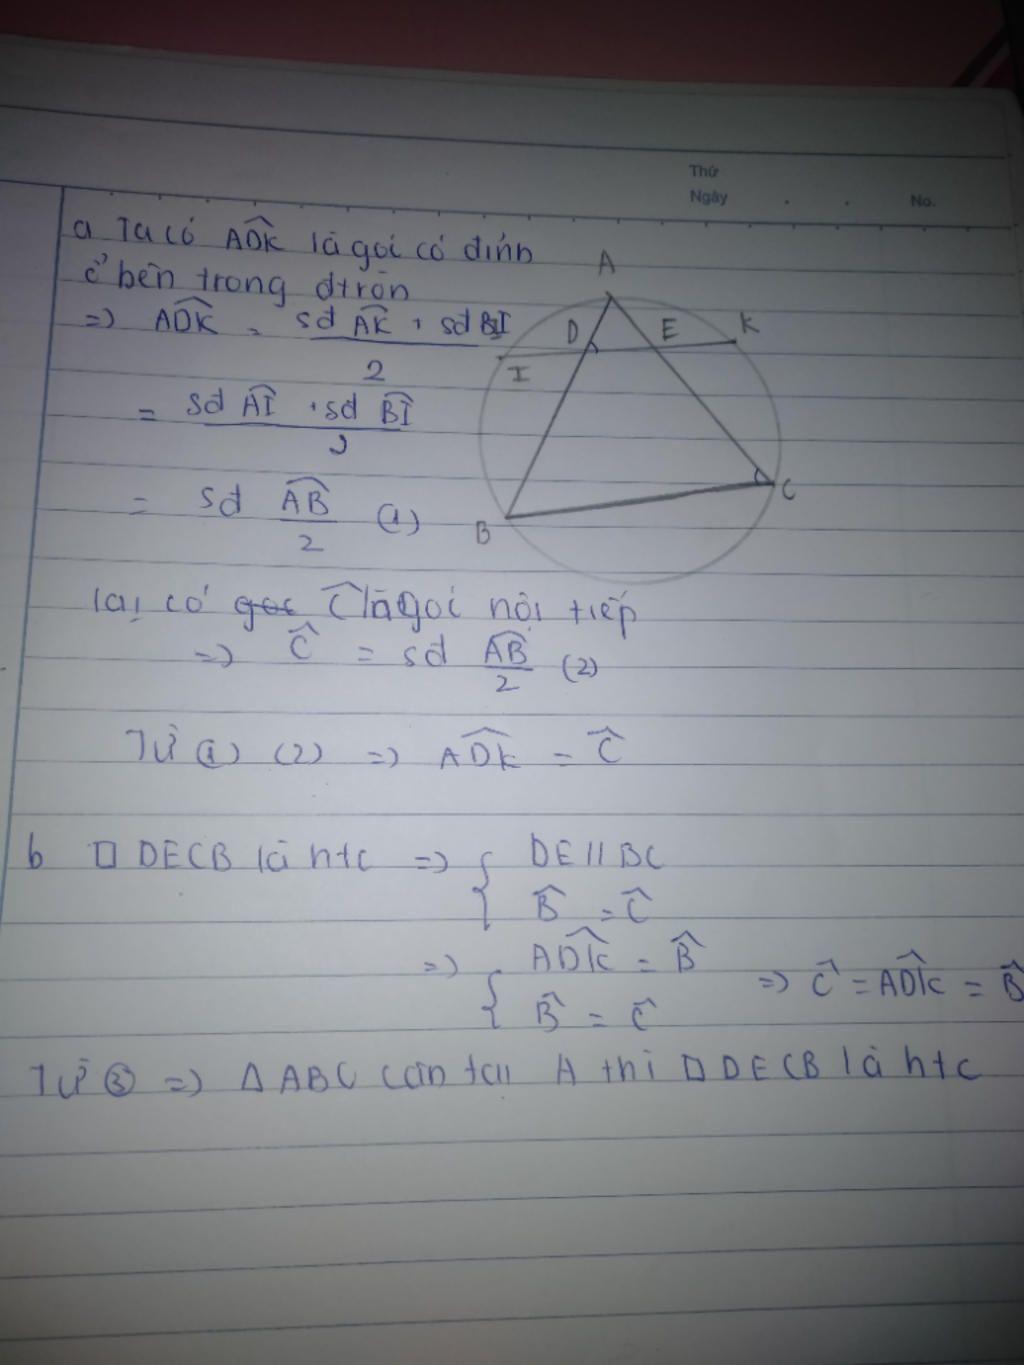 Thứ
Ngày . . No.
a Ta có ADK là góc có đỉnh
ở bên trong đtròn
=> ADK = sđ AK + sđ BI
2
= sđ AI + sđ BI
2
= sđ AB (1)
2
lại có C là góc nội tiếp
=> C = sđ AB (2)
2
Từ (1) (2) => ADK = C
A
D E K
I
B C
b □ DECB là htc => { DE // BC
B = C
=> { ADK = B => C = ADK = B
B = C
Từ ③ => Δ ABC cân tại A thì □ DECB là htc